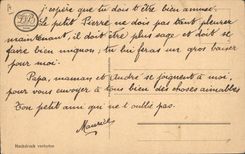 j'espère que tu dois t'être bien amusé.
Le petit Pierre ne dois pas tant pleurer
maintenant, il doit être plus sage et doit se
faire bien mignon; tu lui feras un gros baiser
pour moi.
Papa, maman et André se joignent à moi,
pour vous envoyer à tous bien des choses aimables
Ton petit ami qui ne t'oublie pas.
Maurice
Nachdruck verboten